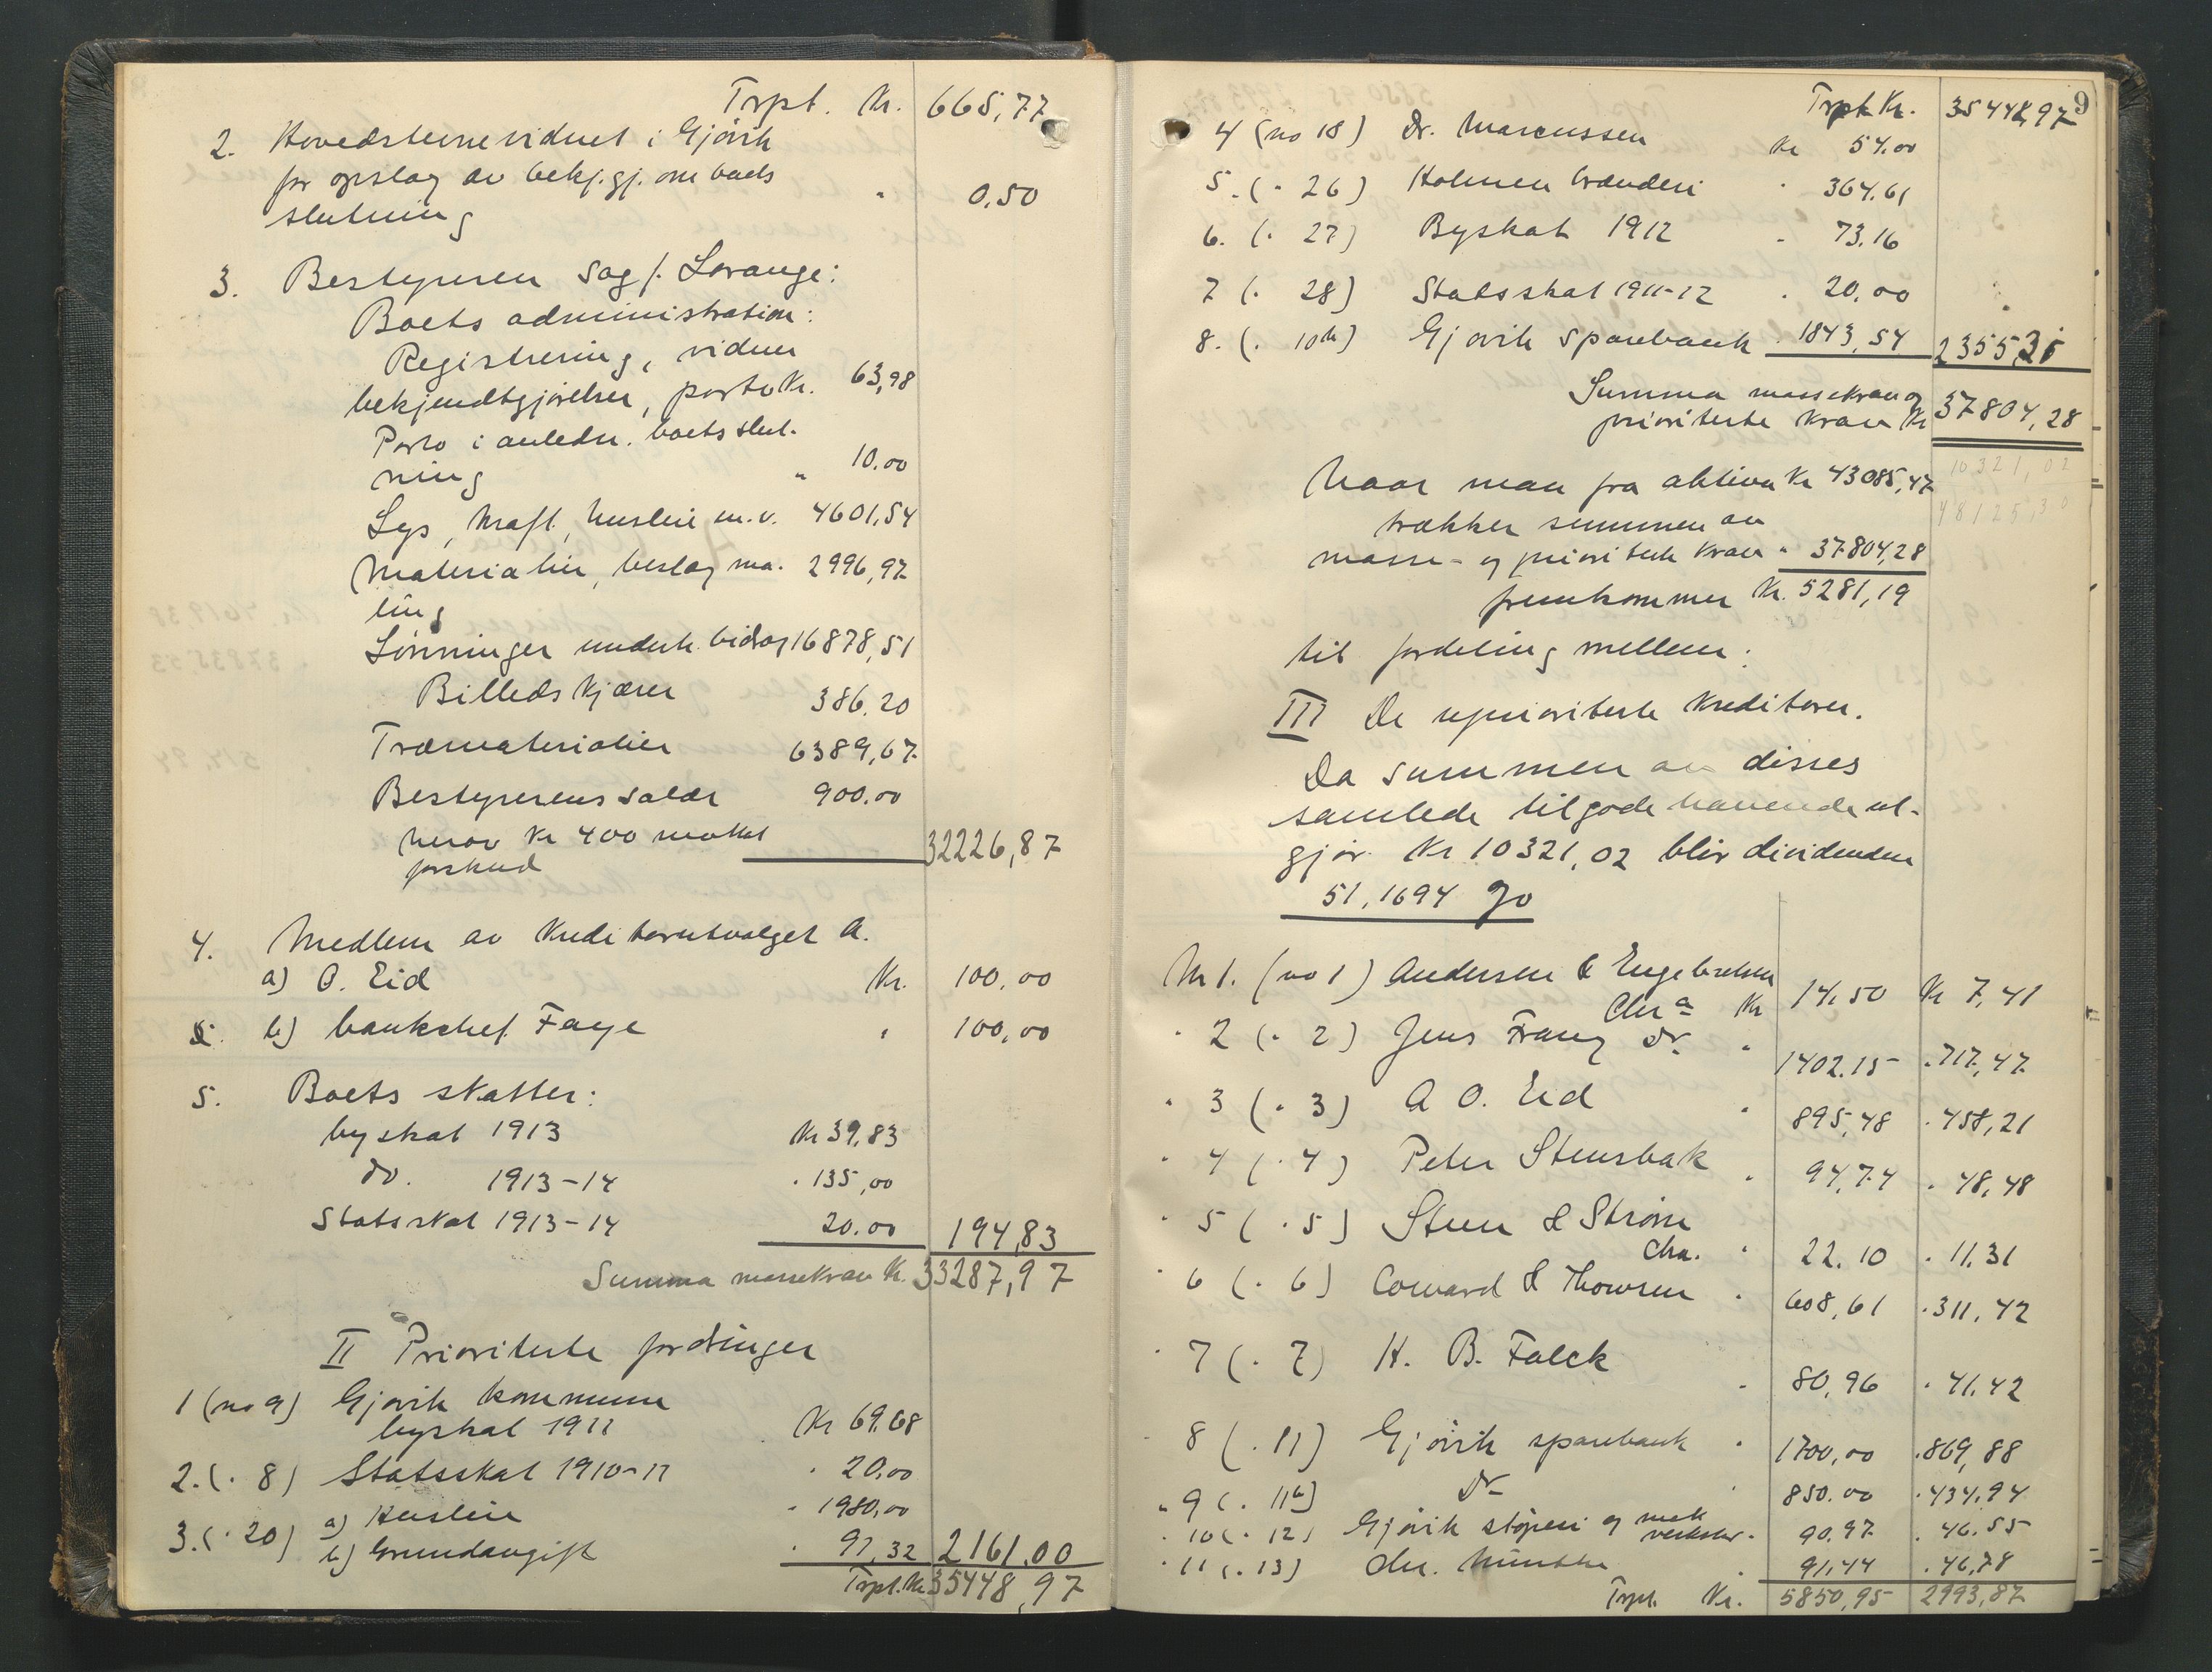 Trpt. Kr. 665,77
2. Hovedstevnevidnet i Gjövik
for opslag av bekj.gj. om boets
slutning " 0,50
3. Bestyreren sagf. Lorange:
Boets administration:
Registrering, vidner
bekjendtgjörelser, porto Kr. 63,98
Porto i anledn. boets slut-
ning " 10.00
Lys, kraft, husleie m.v. 4601,54
Materialier, beslag ma- 2996,97
ling
Lönninger underh. bidrag 16878,51
Billedskjærer 386.20
Træmaterialier 6389,67
Bestyrerens salær 900.00
herav Kr 400 mottat
forskud 32226,87
4. Medlem av kreditorutvalget A.
a) O. Eid Kr. 100,00
b) banksjef Faye " 100,00
5. Boets skatter:
byskat 1913 Kr 39,83
do. 1913-14 . 135,00
Statsskat 1913-14 20.00 194,83
Summa massekrav Kr. 33287,97
II Prioriterte fordringer
1 (no 9) Gjövik kommune
byskat 1911 Kr 69.68
2. (. 8) Statsskat 1910-11 . 20,00
3. (. 20) a) Husleie . 1980,00
b) Grundavgift . 91,32 2161.00
Trpt. Kr 35448,97
9
Trpt Kr. 35448,97
4 (no 18) Dr. Marcussen Kr 54.00
5. (. 26) Holmen brænderi . 364.61
6. (. 27) Byskat 1912 . 73.16
7 (. 28) Statsskat 1911-12 . 20,00
8. (. 10b) Gjövik sparebank . 1843,54 2355,31
Summa massekrav og
prioriterte krav Kr 37804,28
10321,02
Naar man fra aktiva Kr 43085,47
48125,30
trækker summen av
masse- og prioriterte krav " 37804,28
fremkommer Kr. 5281,19
til fordeling mellem:
III De uprioriterte kreditorer.
Da summen av disses
samlede tilgodehavende ut-
gjör Kr 10321,02 blir dividenden
51,1694 %
Nr 1. (no 1) Andersen & Engebretsen
Chr.a Kr 14,50 Kr 7,41
" 2 (. 2) Jens Franz Dr. " 1402.15 . 717,47
" 3 (. 3) A O. Eid " 895,48 . 458,21
" 4 (. 4) Peter Stensbak " 94,74 . 48,48
" 5 (. 5) Steen & Ström
Chra. " 22.10 . 11.31
" 6 (. 6) Coward & Thowsen " 608,61 . 311,42
" 7 (. 7) H. B. Falck " 80,96 . 41,42
8 (. 11) Gjövik sparebank " 1700,00 . 869,88
" 9 (. 11b) Do " 850.00 . 434,94
" 10 (. 12) Gjövik stöperi og mek
verksted " 90.97 . 46.55
" 11 (. 13) Chr. Münster " 91,44 . 46,78
Trpt. Kr. 5850,95 2993,87